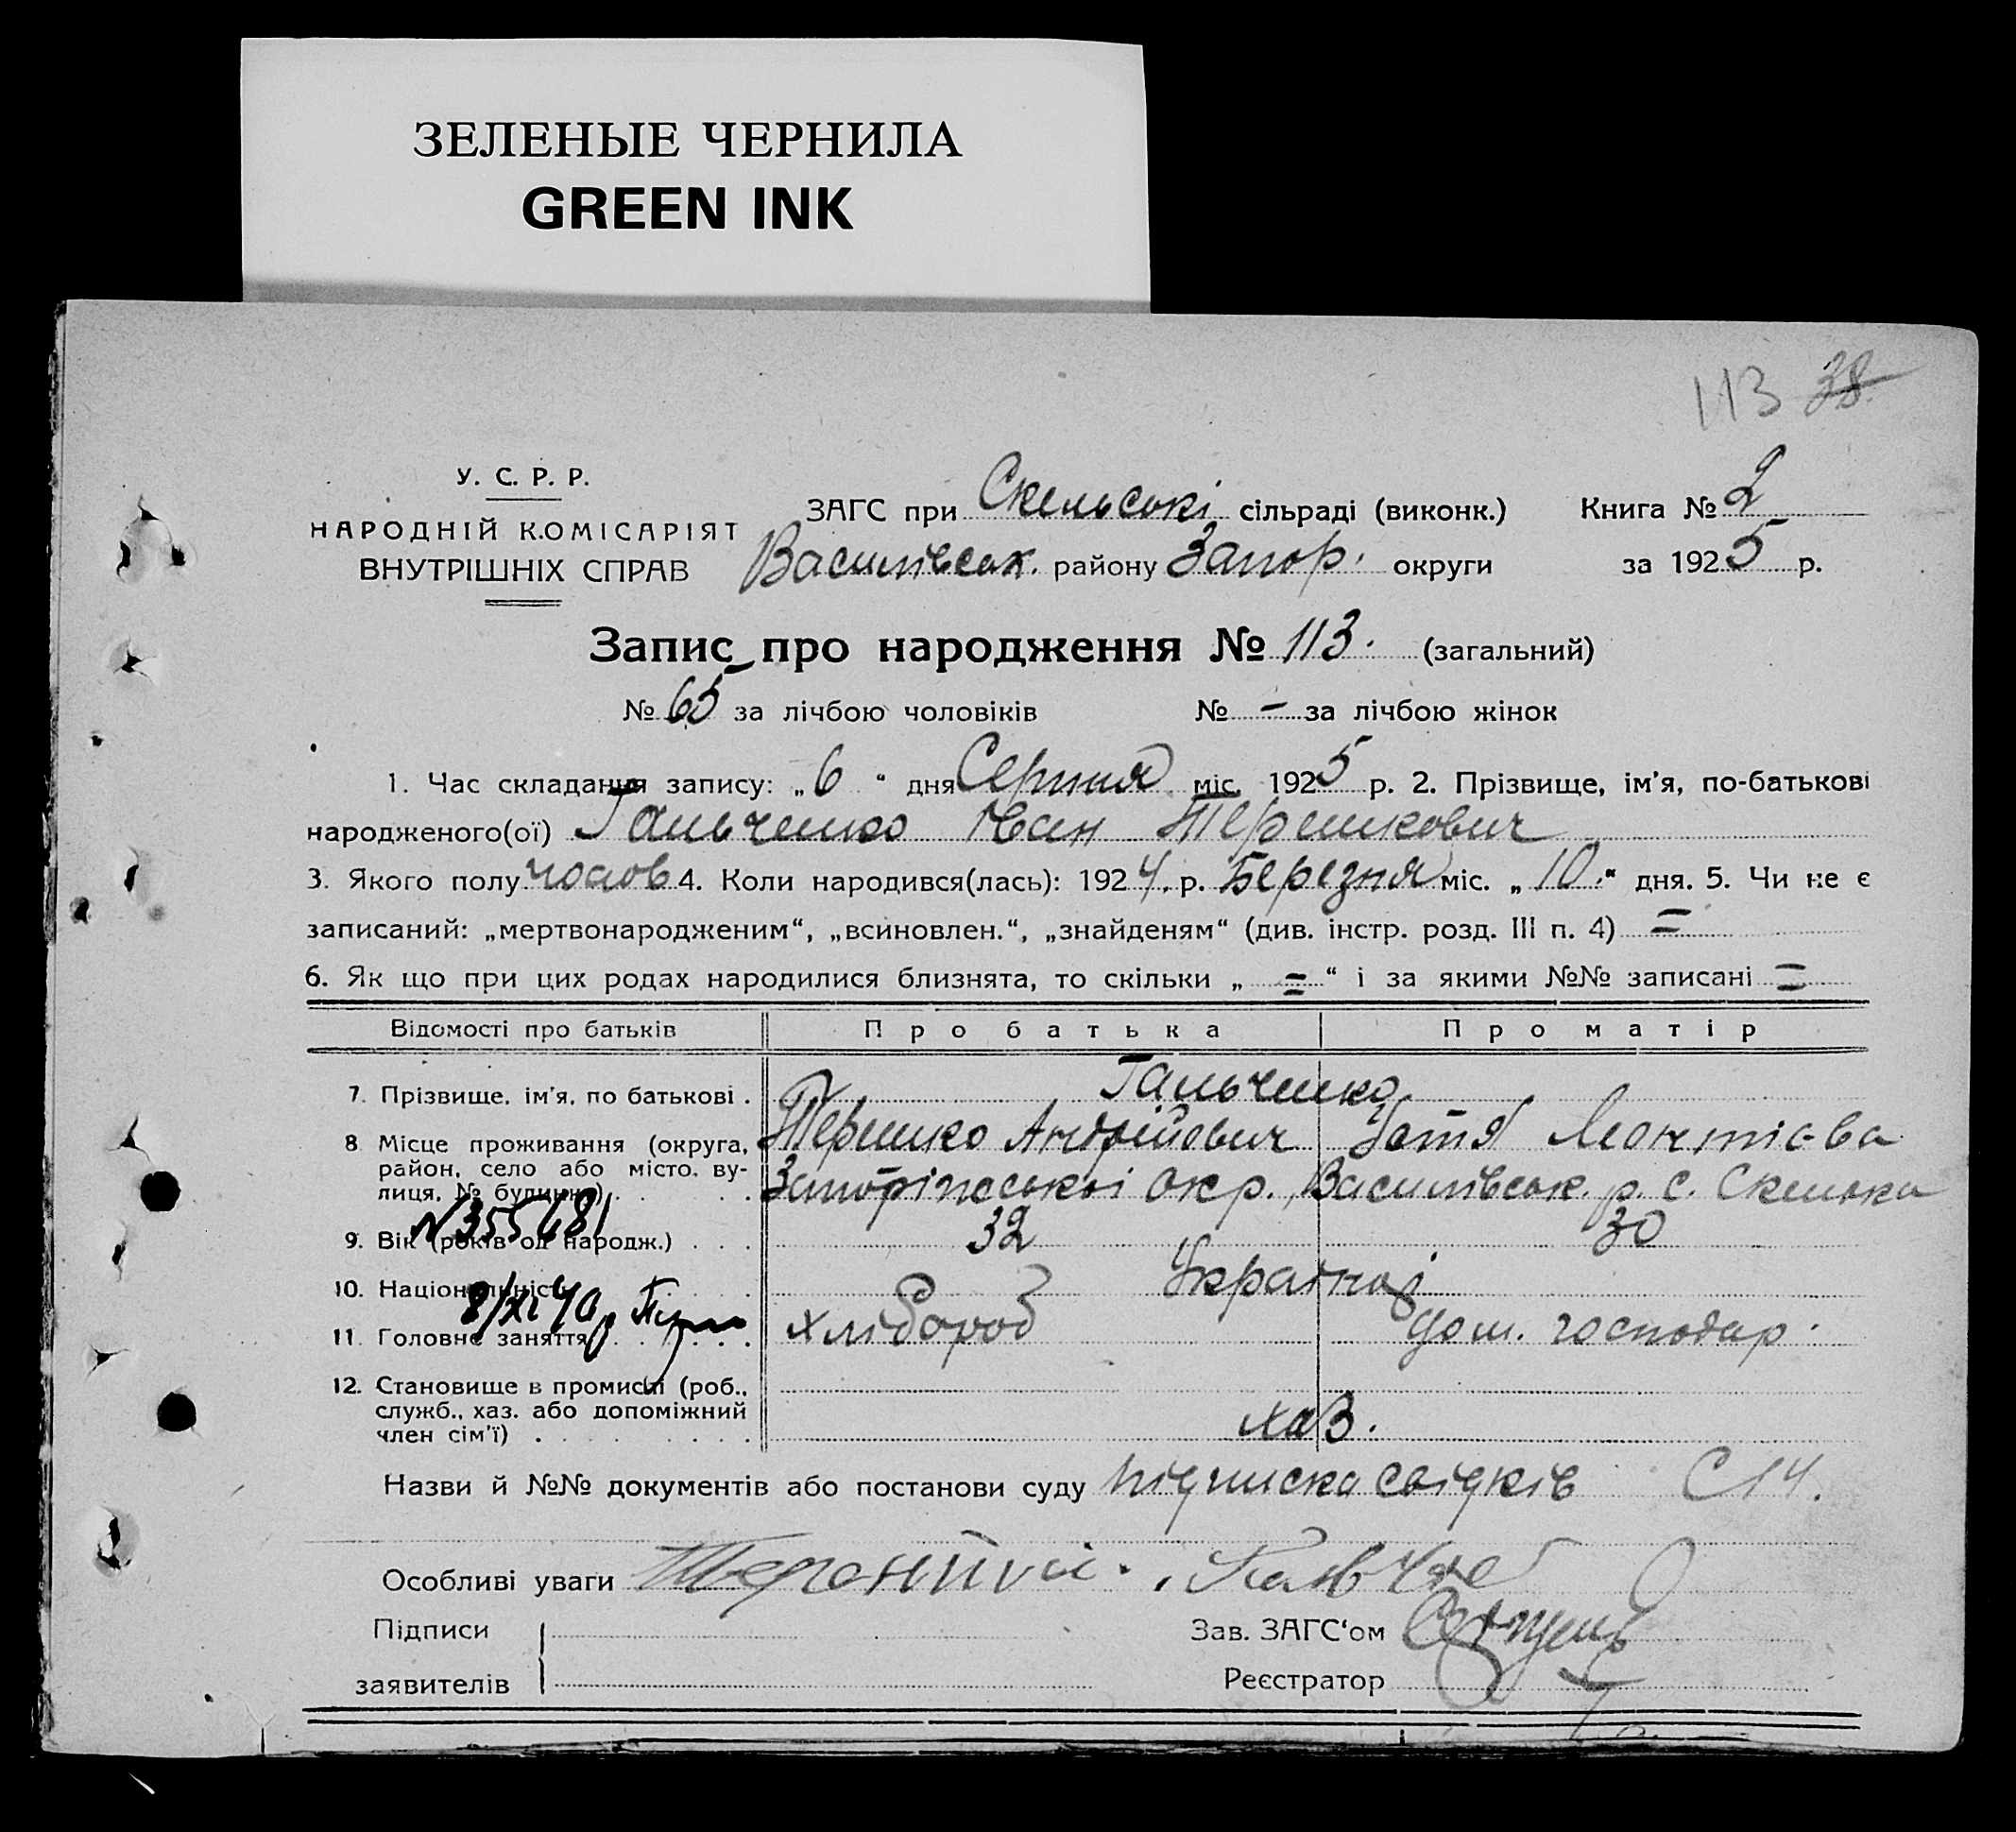 ЗЕЛЕНЫЕ ЧЕРНИЛА
GREEN INK
113 38
У. С. Р. Р.
НАРОДНІЙ КОМІСАРІЯТ
ВНУТРІШНІХ СПРАВ
ЗАГС при Скельські сільраді (виконк.) Книга № 2
Василівськ. району Запор. округи за 1925 р.
Запис про народження № 113. (загальний)
№ 65 за лічбою чоловіків № – за лічбою жінок
1. Час складання запису: „6“ дня Серпня міс. 1925 р. 2. Прізвище, ім’я, по-батькові
народженого(ої) Гальченко Іван Терешкович
3. Якого полу чолов 4. Коли народився(лась): 1924. р. Березня міс. „10.“ дня. 5. Чи не є
записаний: „мертвонародженим“, „всиновлен.“, „знайденям“ (див. інстр. розд. III п. 4) =
6. Як що при цих родах народилися близнята, то скільки „ = “ і за якими №№ записані =
Відомості про батьків Про батька Про матір
7. Прізвище, ім’я, по батькові . Гальченко
Терешко Андрійович Устя Леонтієва
8 Місце проживання (округа,
район, село або місто, ву-
лиця, № будинку) . . . Запоріжської окр., Василівськ. р. с. Скелька
N355681
9. Вік (років од народж.) . . . 32 30
10. Національність . . . Українці
8/XI 40р
11. Головне заняття . . . хлібороб дом. господар.
12. Становище в промислі (роб.,
служб., хаз. або допоміжний
член сім’ї) . . . хаз.
Назви й №№ документів або постанови суду підписка свідків С14.
Особливі уваги
Підписи
заявителів
Зав. ЗАГС‘ом
Реєстратор